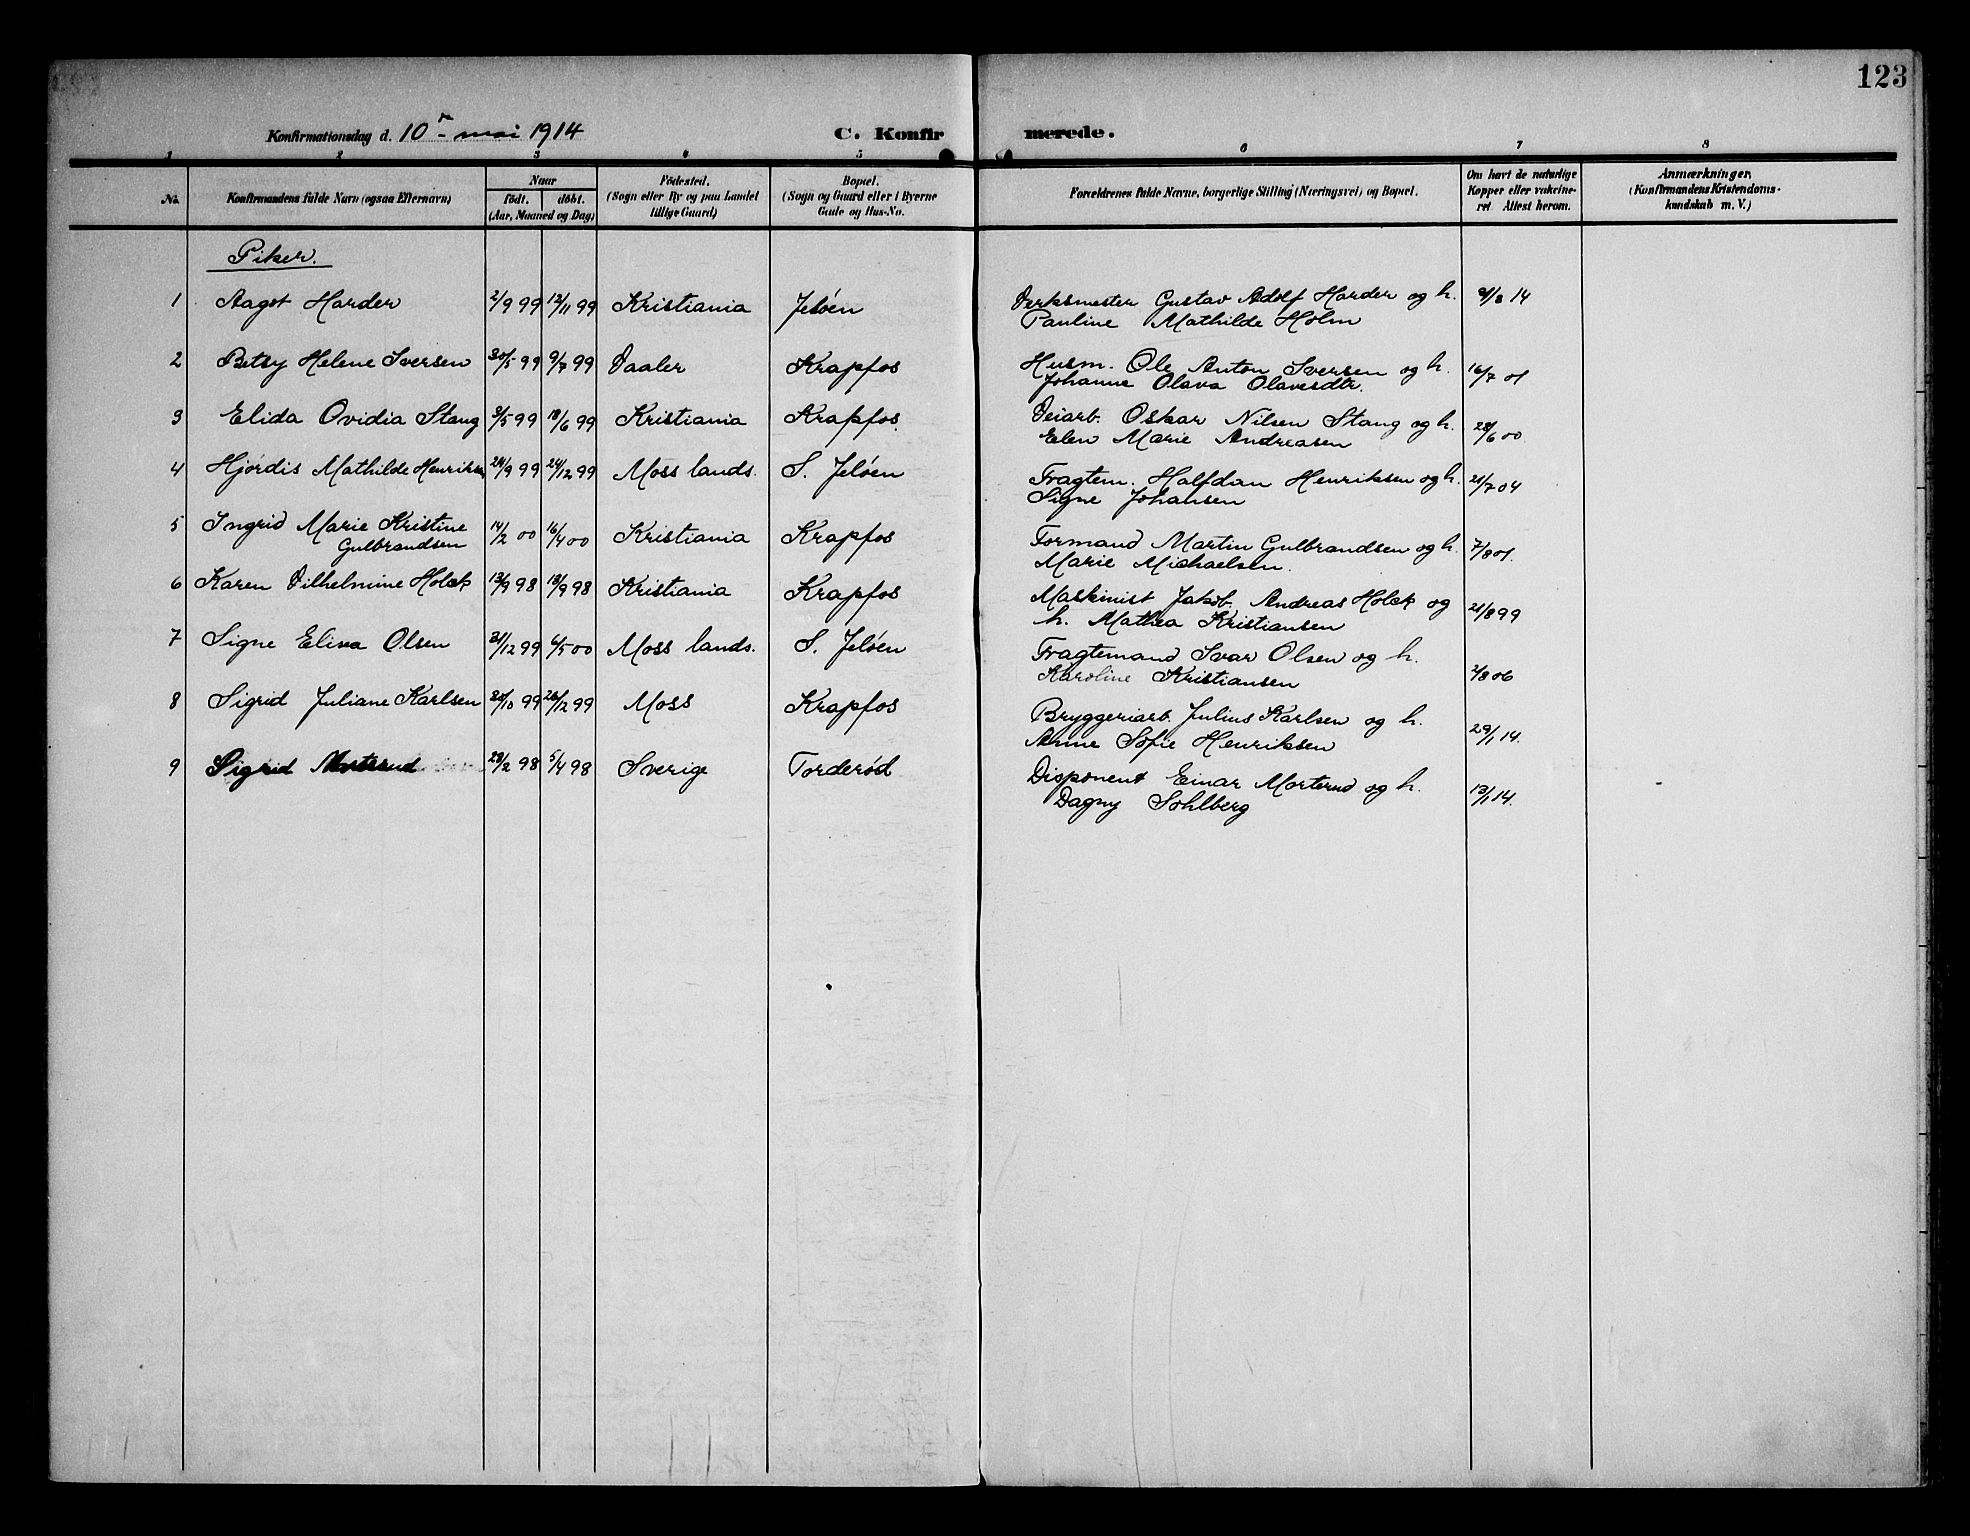 123
Konfirmationsdag d. 10 - mai 1914 C. Konfir merede.
1 2 3 4 5 6 7 8
No. Konfirmandens fulde Navn (ogsaa Efternavn) Naar født. døbt. (Aar, Maaned og Dag) Födested. (Sogn eller By og paa Landet tillige Gaard) Bopæl. (Sogn og Gaard eller i Byerne Gade og Hus-No. Forældrenes fulde Navne, borgerlige Stilling (Næringsvei) og Bopæl. Om havt de naturlige Kopper eller vakcineret Attest herom. Anmærkninger, (Konfirmandens Kristendomskundskab m. V.)
Piker.
1 Aagot Harder 2/9 99 12/11 99 Kristiania Jeløen Verksmester Gustav Adolf Harder og h. /3 14
Pauline Mathilde Holm
2 Betsy Helene Iversen 30/5 99 9/7 99 Vaaler Krapfos Husm. Ole Anton Iversen og h. 16/7 01
Johanne Olava Olavesdtr.
3 Elida Ovidia Stang 3/5 99 18/6 99 Kristiania Krapfos. Veiarb. Oskar Nilsen Stang og h. 28/6 00
Elen Marie Andreasen
4 Hjørdis Mathilde Henriksen 24/9 99 24/12 99 Moss lands. S. Jeløen Fragtem. Halfdan Henriksen og h. 21/7 04
Signe Johansen
5 Ingrid Marie Kristine Gulbrandsen 14/2 00 16/4 00 Kristiania Krapfos Formand Martin Gulbrandsen og h. 7/8 01.
Marie Michaelsen.
6 Karen Vilhelmine Holck 13/9 98 18/9 98 Kristiania Krapfos Maskinist Jakob Andreas Holck og 21/8 99
h. Mathea Kristiansen
7 Signe Eliva Olsen 31/12 99 6/5 00 Moss lands. S. Jeløen Fragtemand Ivar Olsen og h.
Karoline Kristiansen 2/8 06
8 Sigrid Juliane Karlsen 30/10 99 26/12 99 Moss Krapfos Bryggeriarb. Julius Karlsen og h. 29/1 14.
Anne Sofie Henriksen
9 Sigrid Morterud 28/2 98 5/4 98 Sverige Torderød Disponent Einar Morterud og h. 13/1 14.
Dagny Sohlberg